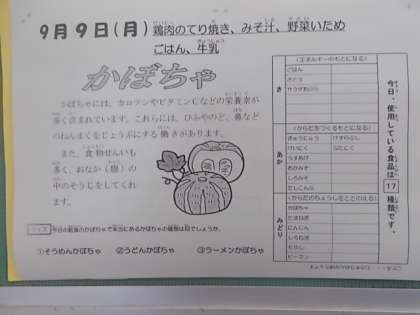 9月9日(月) 鶏肉のてり焼き、みそ汁、野菜いため
ごはん、牛乳
かぼちゃ
かぼちゃには、カロテンやビタミンCなどの栄養素が
多く含まれています。これらには、ひふやのど、鼻など
のねんまくをじょうぶにする働きがあります。
また、食物せんいも
多く、おなか(腸)の
中のそうじをしてくれ
ます。
①そうめんかぼちゃ ②うどんかぼちゃ ③ラーメンかぼちゃ
今日、使用している食品は17種類です。
き
(エネルギーのもとになる)
ごはん
さとう
サラダあぶら
あか
(からだをつくるもとになる)
ぎゅうにゅう
けいにく
あかみそ
しろみそ
みどり
(からだのちょうしをととのえる)
かぼちゃ
たまねぎ
にんじん
しろねぎ
もやし
ピーマン